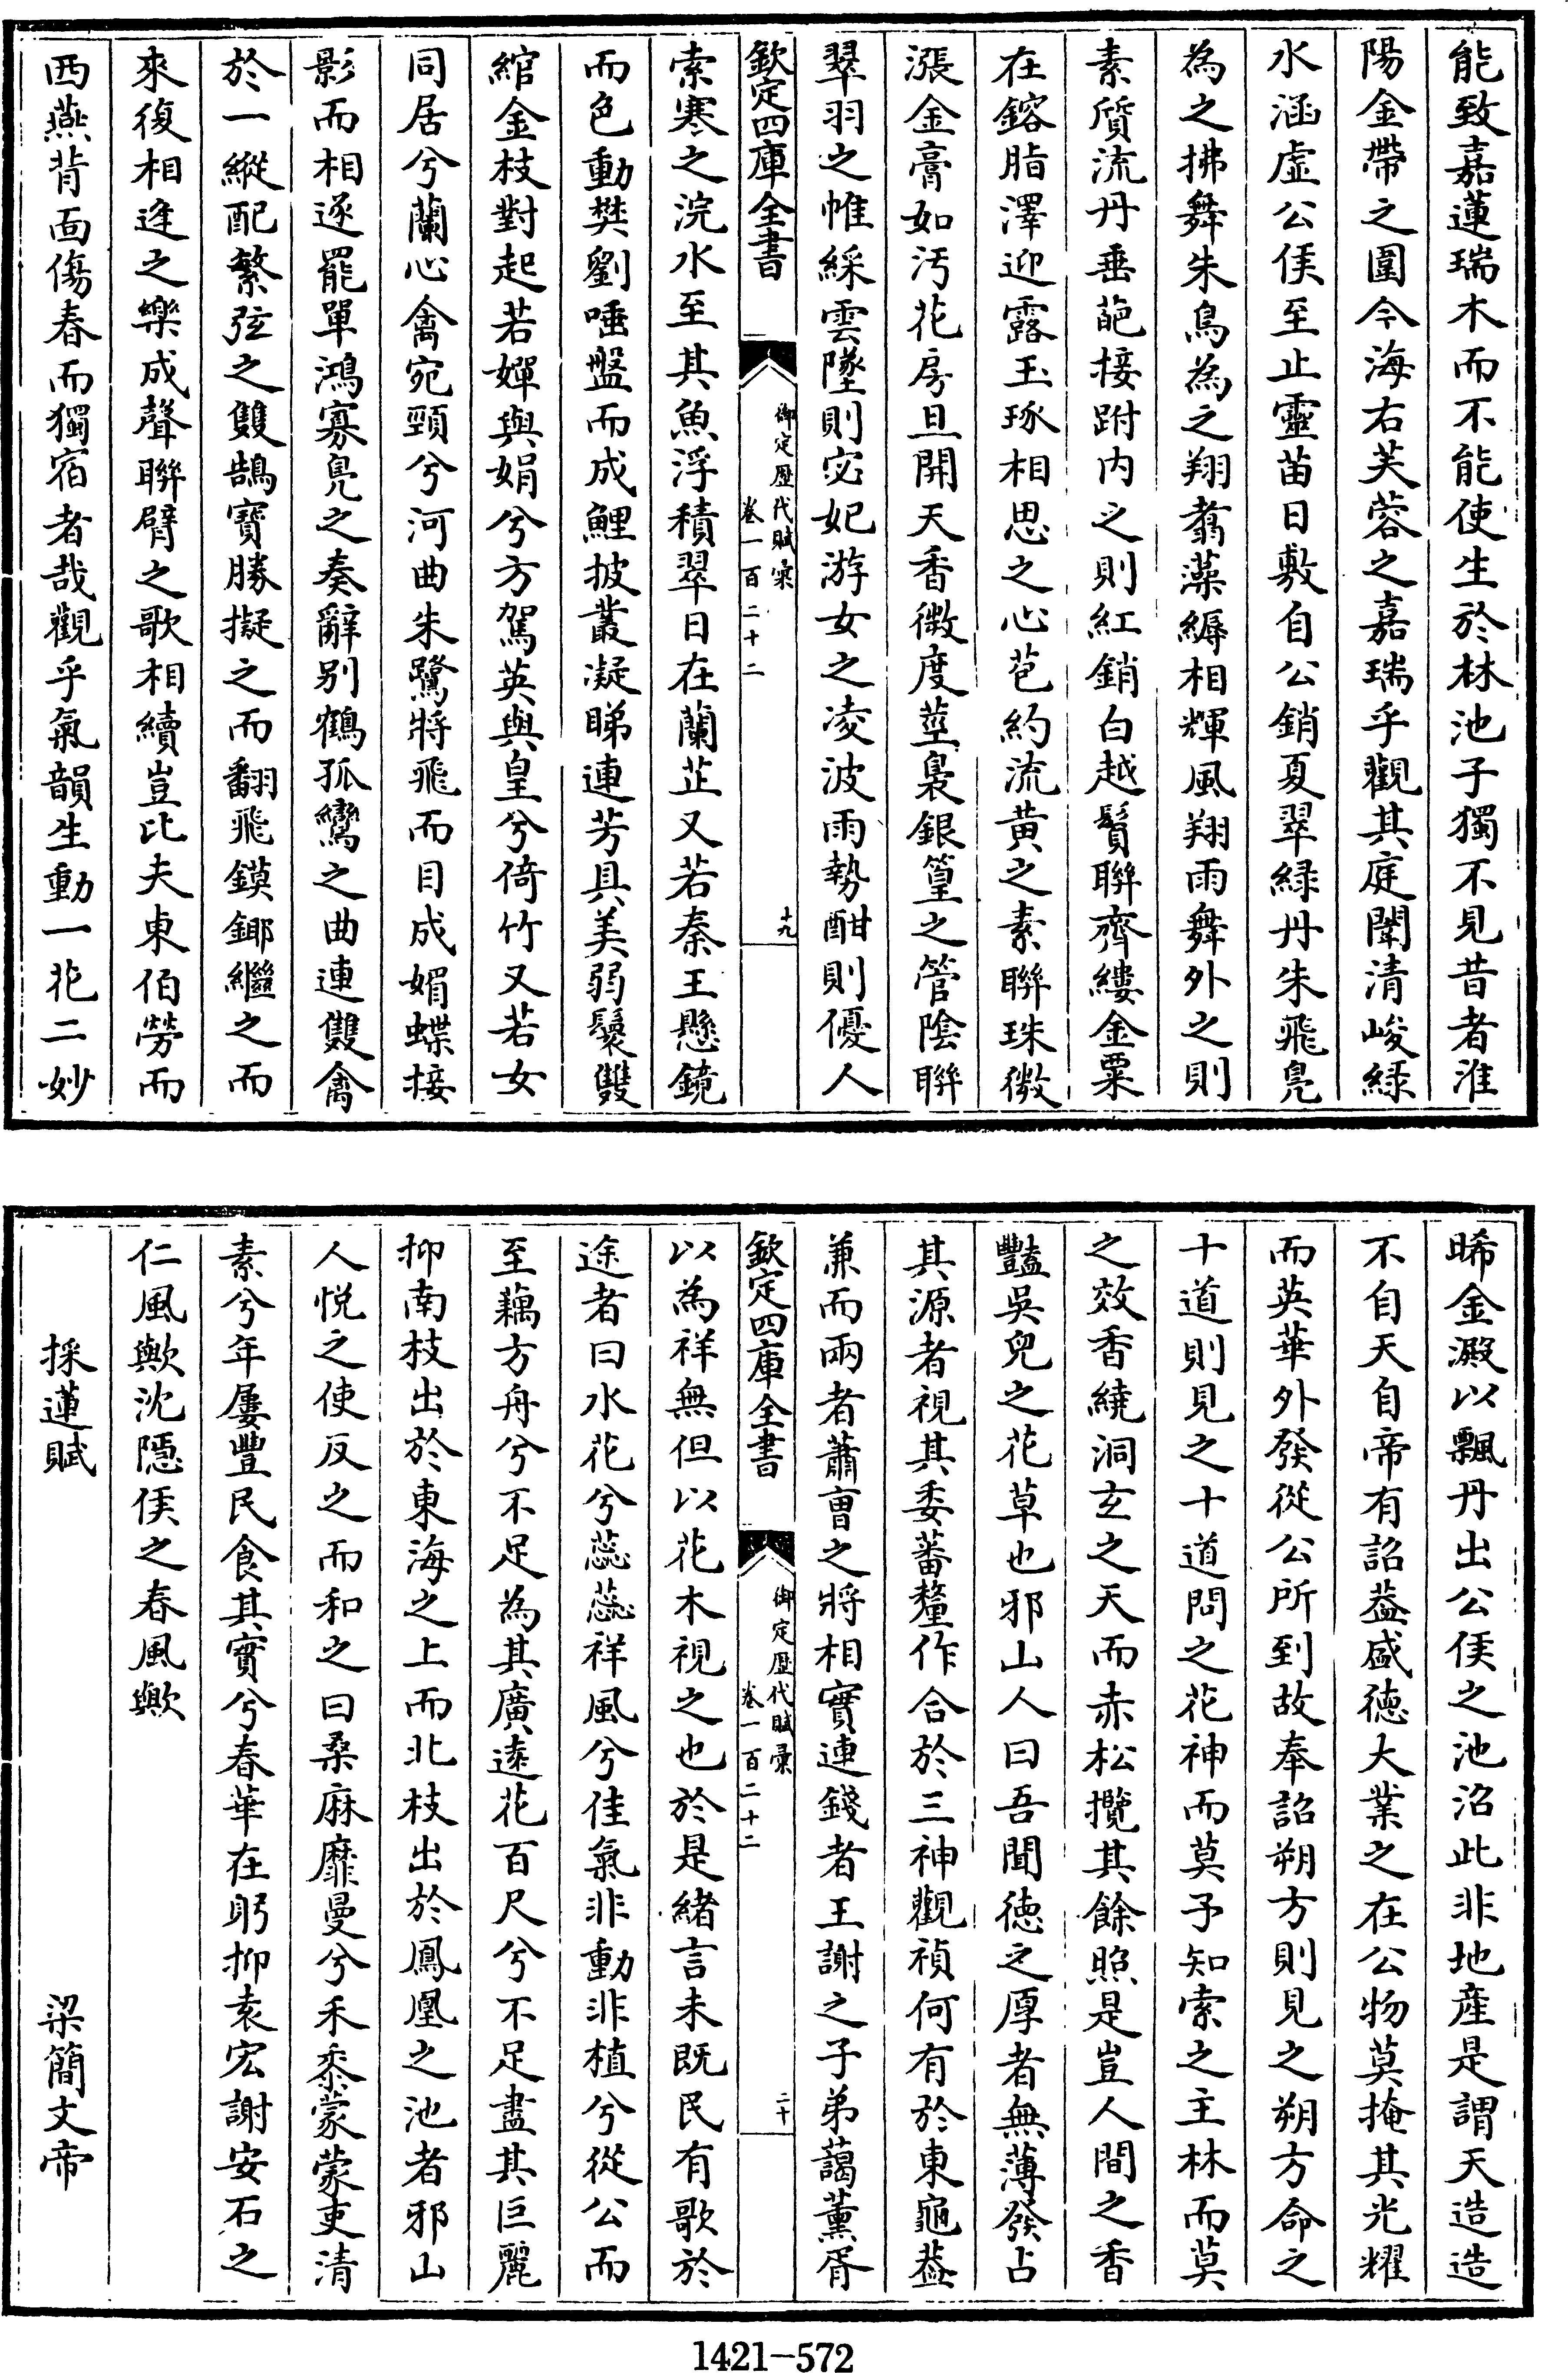 能致嘉蓮瑞木而不能使生於林池子獨不見昔者淮
陽金帶之圍今海右芙蓉之嘉瑞乎觀其庭闈清峻綠
水涵虛公侯至止靈苗日敷自公銷夏翠綠丹朱飛鳧
為之拂舞朱鳥為之翔翥藻縟相輝風翔雨舞外之則
素質流丹垂葩接跗内之則紅銷白越鬢聯齊縷金粟
在鎔脂澤迎露玉琢相思之心苞約流黃之素聯珠微
漲金膏如汚花房旦開天香微度莖裊銀篁之管陰聯
翠羽之帷綵雲墜則宓妃游女之凌波雨勢酣則優人
欽定四庫全書
御定歷代賦彙
卷一百二十二
十九
索寒之浣水至其魚浮積翠日在蘭芷又若秦王懸鏡
而色動樊劉唾盤而成鯉披叢凝睇連芳具美弱鬟雙
綰金枝對起若嬋與娟兮方駕英與皇兮倚竹又若女
同居兮蘭心禽宛頸兮河曲朱鷺將飛而目成媚蝶接
影而相逐罷單鴻寡鳧之奏辭别鶴孤鸞之曲連雙禽
於一縱配繁弦之雙鵠寳勝擬之而翻飛鏌鎁繼之而
來復相逢之樂成聲聯臂之歌相續豈比夫東伯勞而
西燕背面傷春而獨宿者哉觀乎氣韻生動一花二妙
晞金澱以飄丹出公侯之池沼此非地產是謂天造造
不自天自帝有詔葢盛德大業之在公物莫掩其光耀
而英華外發從公所到故奉詔朔方則見之朔方命之
十道則見之十道問之花神而莫予知索之主林而莫
之效香繞洞玄之天而赤松攬其餘照是豈人間之香
豔吳兒之花草也邪山人曰吾聞德之厚者無薄發占
其源者視其委蕃釐作合於三神觀禎何有於東龜葢
兼而兩者蕭曺之將相實連錢者王謝之子弟藹薰胥
欽定四庫全書
御定歷代賦彙
卷一百二十二
二十
以為祥無但以花木視之也於是緒言未既民有歌於
途者曰水花兮蕊蕊祥風兮佳氣非動非植兮從公而
至藕方舟兮不足為其廣遠花百尺兮不足盡其巨麗
抑南枝出於東海之上而北枝出於鳳凰之池者邪山
人悅之使反之而和之曰桑麻靡曼兮禾黍蒙蒙吏清
素兮年屢豐民食其實兮春華在躬抑袁宏謝安石之
仁風歟沈隱侯之春風歟
採蓮賦 梁簡文帝
1421-572